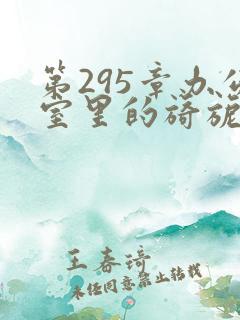 第295章办公
室里的旖旎
王春琦
未经同意禁止转载